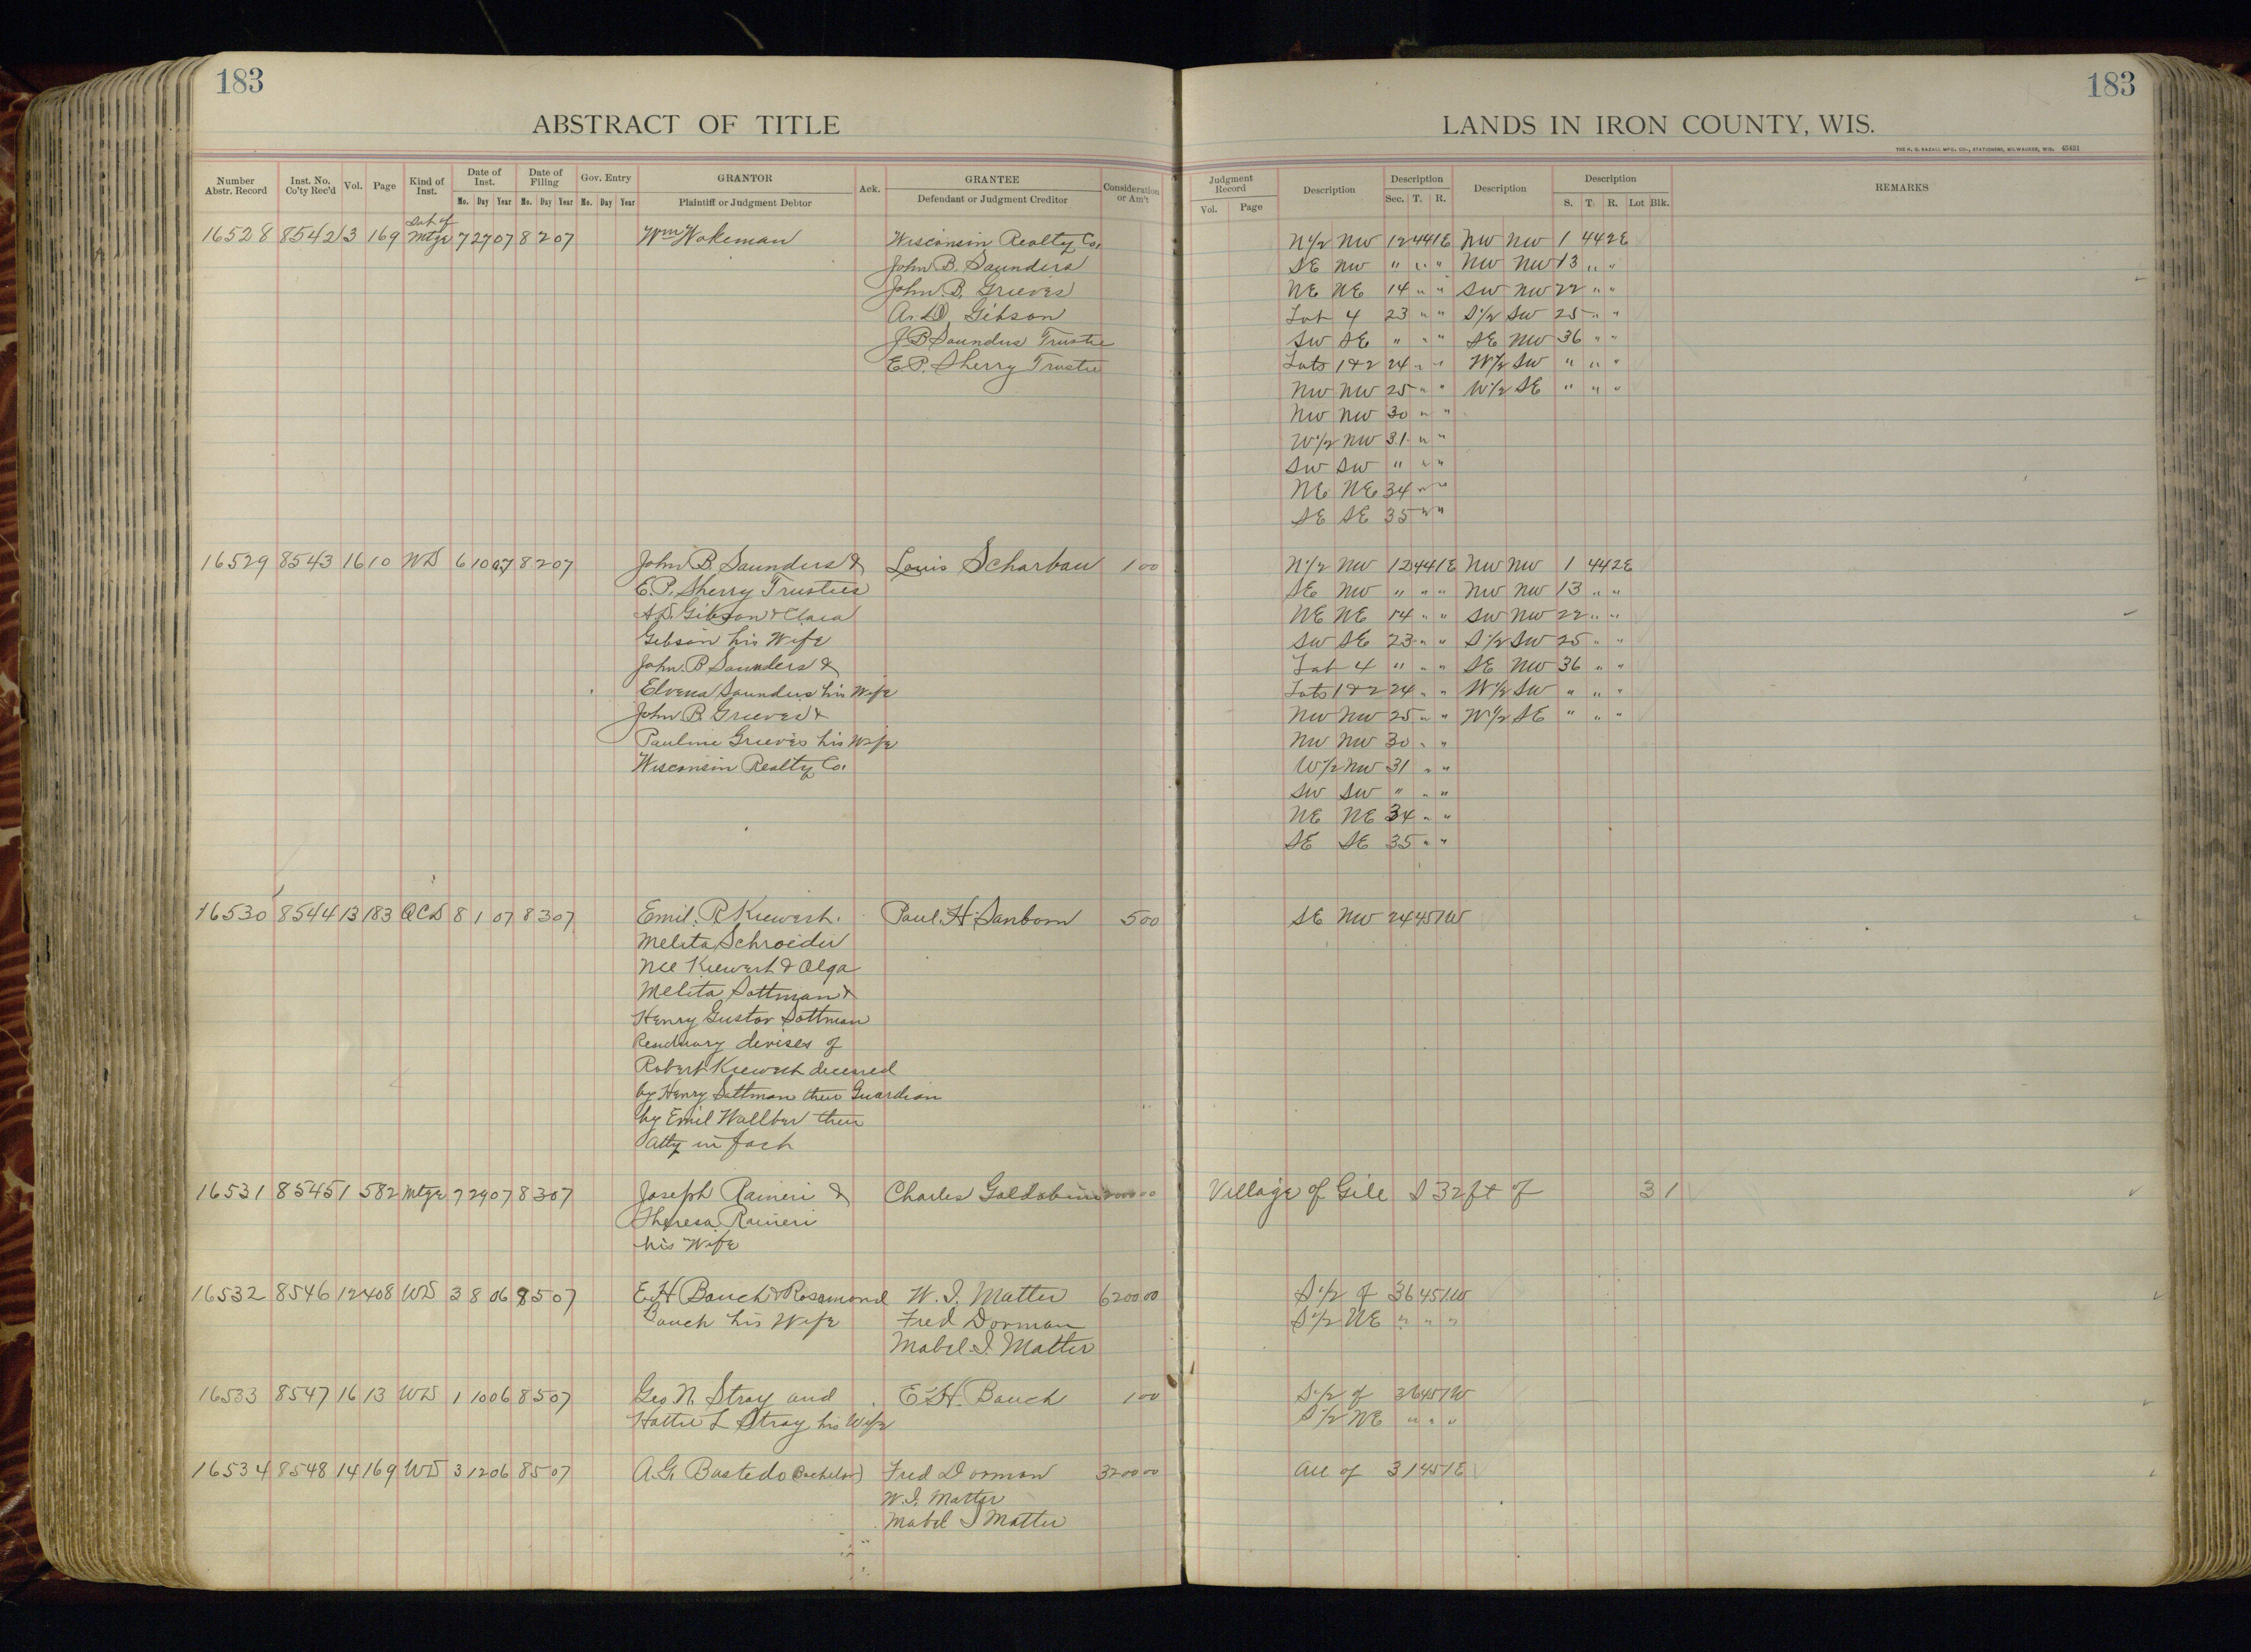 183
183
ABSTRACT OF TITLE
LANDS IN IRON COUNTY, WIS.
THE H. G. RAZALL MFG. CO., STATIONERS, MILWAUKEE, WIS. 45421
Number Abstr. Record Inst. No. Co'ty Rec'd Vol. Page Kind of Inst. Date of Inst. Mo. Day Year Date of Filing Mo. Day Year Gov. Entry Mo. Day Year GRANTOR Plaintiff or Judgment Debtor Ack. GRANTEE Defendant or Judgment Creditor Consideration or Am't
Judgment Record Vol. Page Description Description Sec. T. R. Description Description S. T. R. Lot Blk. REMARKS
Sat of
16528 8542 13 169 Mtge 7 27 07 8 2 07 Wm Wakeman Wisconsin Realty Co. N1/2 NW 12 44 1E NW NW 1 44 2E
John B. Saunders SE NW " " " NW NW 13 " "
John B. Grieves NE NE 14 " " SW NW 22 " "
A. D. Gibson Lot 4 23 " " S1/2 SW 25 " "
J B Saunders Trustee SW SE " " " SE NW 36 " "
E.P. Sherry Trustee Lots 1&2 24 " " W1/2 SW " " "
NW NW 25 " " W1/2 SE " " "
NW NW 30 " "
W1/2 NW 31 " "
SW SW " " "
NE NE 34 " "
SE SE 35 " "
16529 8543 16 10 WD 6 10 07 8 2 07 John B. Saunders & Louis Scharbau 1 00 N1/2 NW 12 44 1E NW NW 1 44 2E
E.P. Sherry Trustees SE NW " " " NW NW 13 " "
A.D. Gibson & Clara NE NE 14 " " SW NW 22 " "
Gibson his Wife SW SE 23 " " S1/2 SW 25 " "
John. B Saunders & Lot 4 " " " SE NW 36 " "
Elvena Saunders his Wife Lots 1&2 24 " " W1/2 SW " " "
John B. Grieves & NW NW 25 " " W1/2 SE " " "
Pauline Grieves his Wife NW NW 30 " "
Wisconsin Realty Co. W1/2 NW 31 " "
SW SW " " "
NE NE 34 " "
SE SE 35 " "
16530 8544 13 183 QCD 8 1 07 8 3 07 Emil. R. Kiewert. Paul. H. Sanborn 5 00 SE NW 24 45 1W
Melita Schroeder
Nee Kiewert & Olga
Melita Sottman &
Henry Gustav Sottman
Residuary devises of
Robert Kiewert deceased
by Henry Sottman their Guardian
by Emil Wallber their
Atty in fact
16531 8545 1 582 Mtge 7 29 07 8 3 07 Joseph Raineri & Charles Goldobini 200 00 Village of Gile S 32 ft of 3 1
Theresa Raineri
his Wife
16532 8546 12 408 WD 3 8 06 8 5 07 E.H Bauch & Rosamond W. I. Matter 6200 00 S1/2 of 36 45 1W
Bauch his Wife Fred Dorman S1/2 NE " " "
Mabel I. Matter
16533 8547 16 13 WD 1 10 06 8 5 07 Geo N. Stray and E.H. Bauch 1 00 S1/2 of 36 45 1W
Hattie L Stray his Wife S1/2 NE " " "
16534 8548 14 169 WD 3 12 06 8 5 07 A.G. Bastedo (Bachelor) Fred Dorman 3200 00 All of 31 45 1E
W. I. Matter
Mabel I Matter